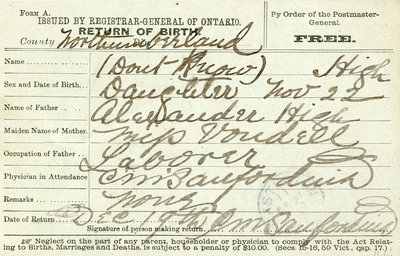 FORM A.
ISSUED BY REGISTRAR-GENERAL OF ONTARIO.
RETURN OF BIRTH.
By Order of the Postmaster-General.
FREE.
County Northumberland
Name (Dont Know) High
Sex and Date of Birth Daughter Nov 22
Name of Father Alexander High
Maiden Name of Mother. Miss Vondell
Occupation of Father Laborer
Physician in Attendance
Remarks none
Date of Return Dec 19
Signature of person making return.
Neglect on the part of any parent, householder or physician to comply with the Act Relating to Births, Marriages and Deaths, is subject to a penalty of $10.00. (Secs. 15-16, 59 Vict., cap. 17.)